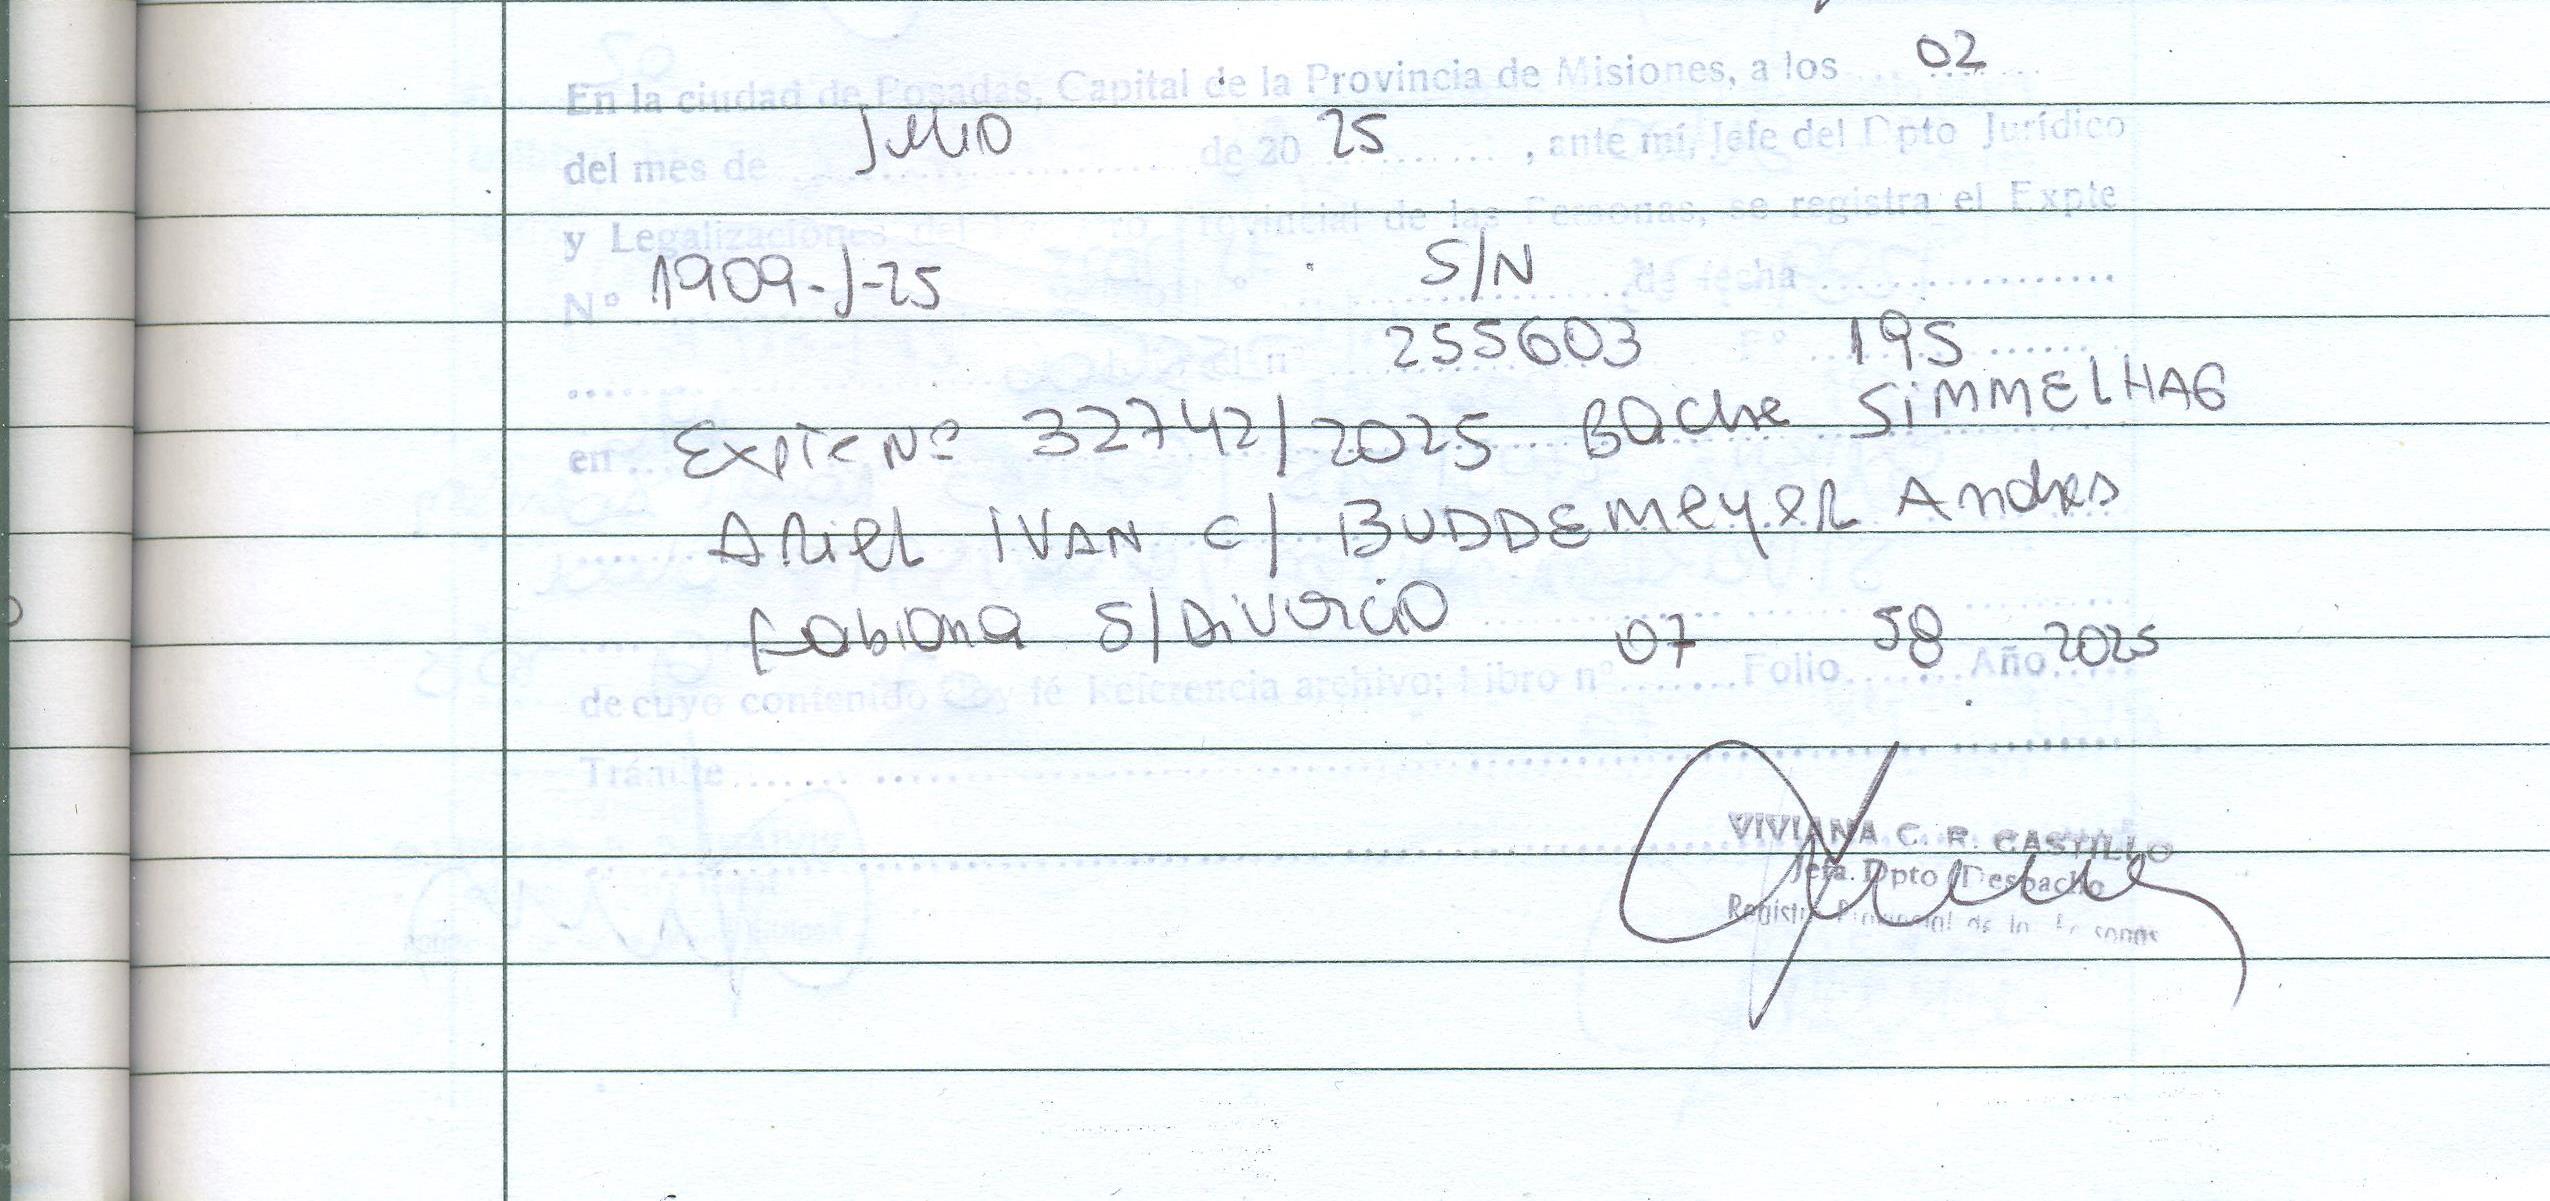 En la ciudad de Posadas, Capital de la Provincia de Misiones, a los ... 02 .......
del mes de ...... Julio ...... de 20 25 .......... , ante mí, Jefe del Dpto Jurídico
y Legalizaciones del Provincial de las Personas, se registra el Expte
Nº 1909-J-25 S/N de fecha ................
........ 255603 Fº 195 .......
en ... Expte Nº 32742/2025 Bache SiMMELHAG
Ariel IVAN C/ BUDDEMEYER Andres
Fabiana S/ Divorcio
de cuyo contenido doy fé Referencia archivo: Libro nº 07 Folio 58 Año 2025
Trámite
VIVIANA C. R. CASTILLO
Jefa. Dpto Despacho
Registro Provincial de las Personas